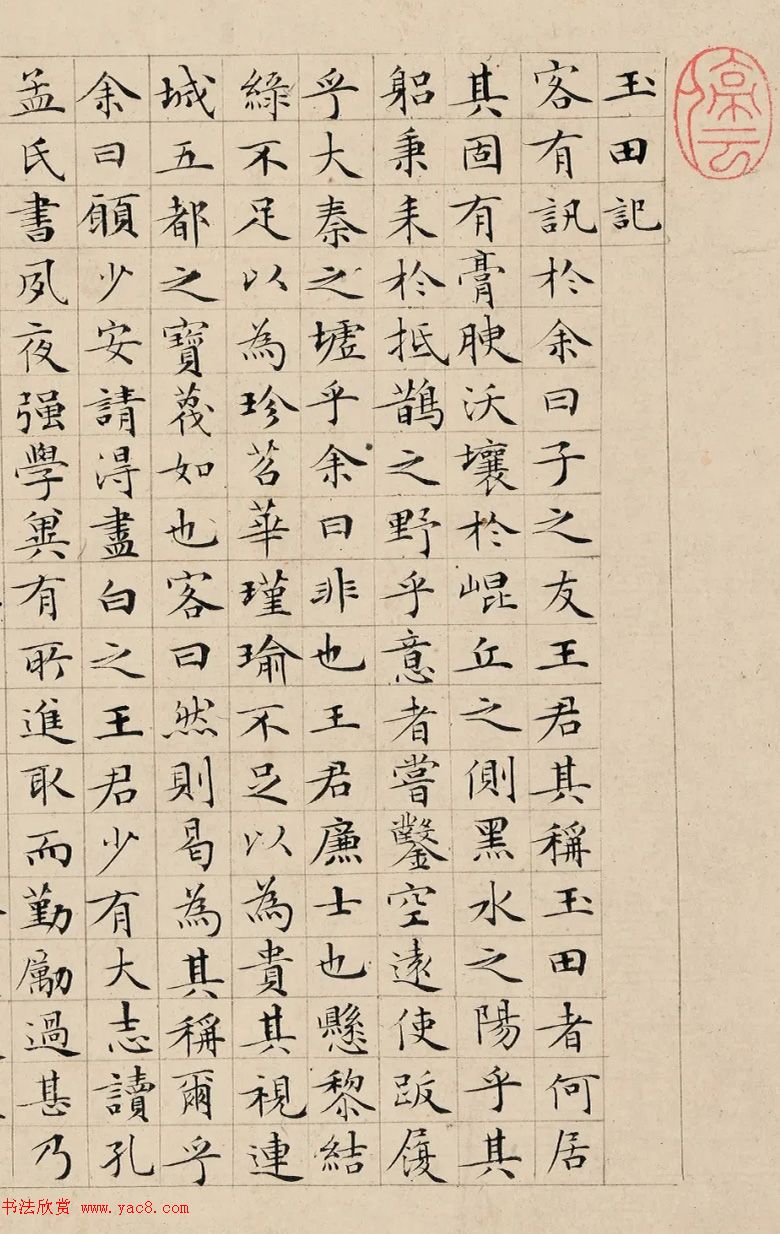 停云
玉田記
客有訊於余曰子之友王君其稱玉田者何居
其固有膏腴沃壤於崐丘之側黑水之陽乎其
躳秉耒於抵鵲之野乎意者嘗鑿空遠使跋履
乎大秦之墟乎余曰非也王君廉士也懸黎結
綠不足以為珍苕華瑾瑜不足以為貴其視連
城五都之寶蔑如也客曰然則曷為其稱爾乎
余曰願少安請得盡白之王君少有大志讀孔
孟氏書夙夜强學冀有所進取而勤勵過甚乃
书法欣赏 www.yac8.com